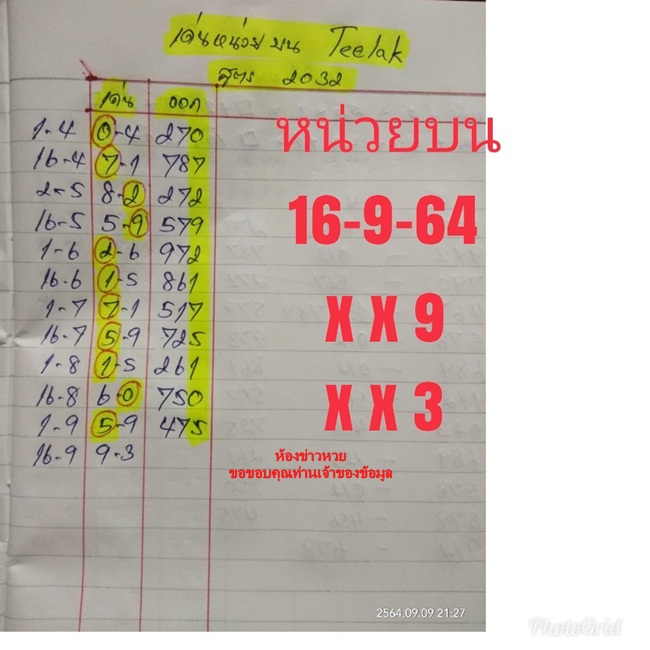 เด่นหน่วยบน Teelak
สูตร 2032
เด่น ออก
1-4 0-4 270
16-4 7-1 787
2-5 8-2 272
16-5 5-9 579
1-6 2-6 972
16-6 1-5 861
1-7 7-1 517
16-7 5-9 725
1-8 1-5 261
16-8 6-0 750
1-9 5-9 475
16-9 9-3
หน่วยบน
16-9-64
X X 9
X X 3
ห้องข่าวหวย
ขอขอบคุณท่านเจ้าของข้อมูล
2564.09.09 21:27
PhotoGrid